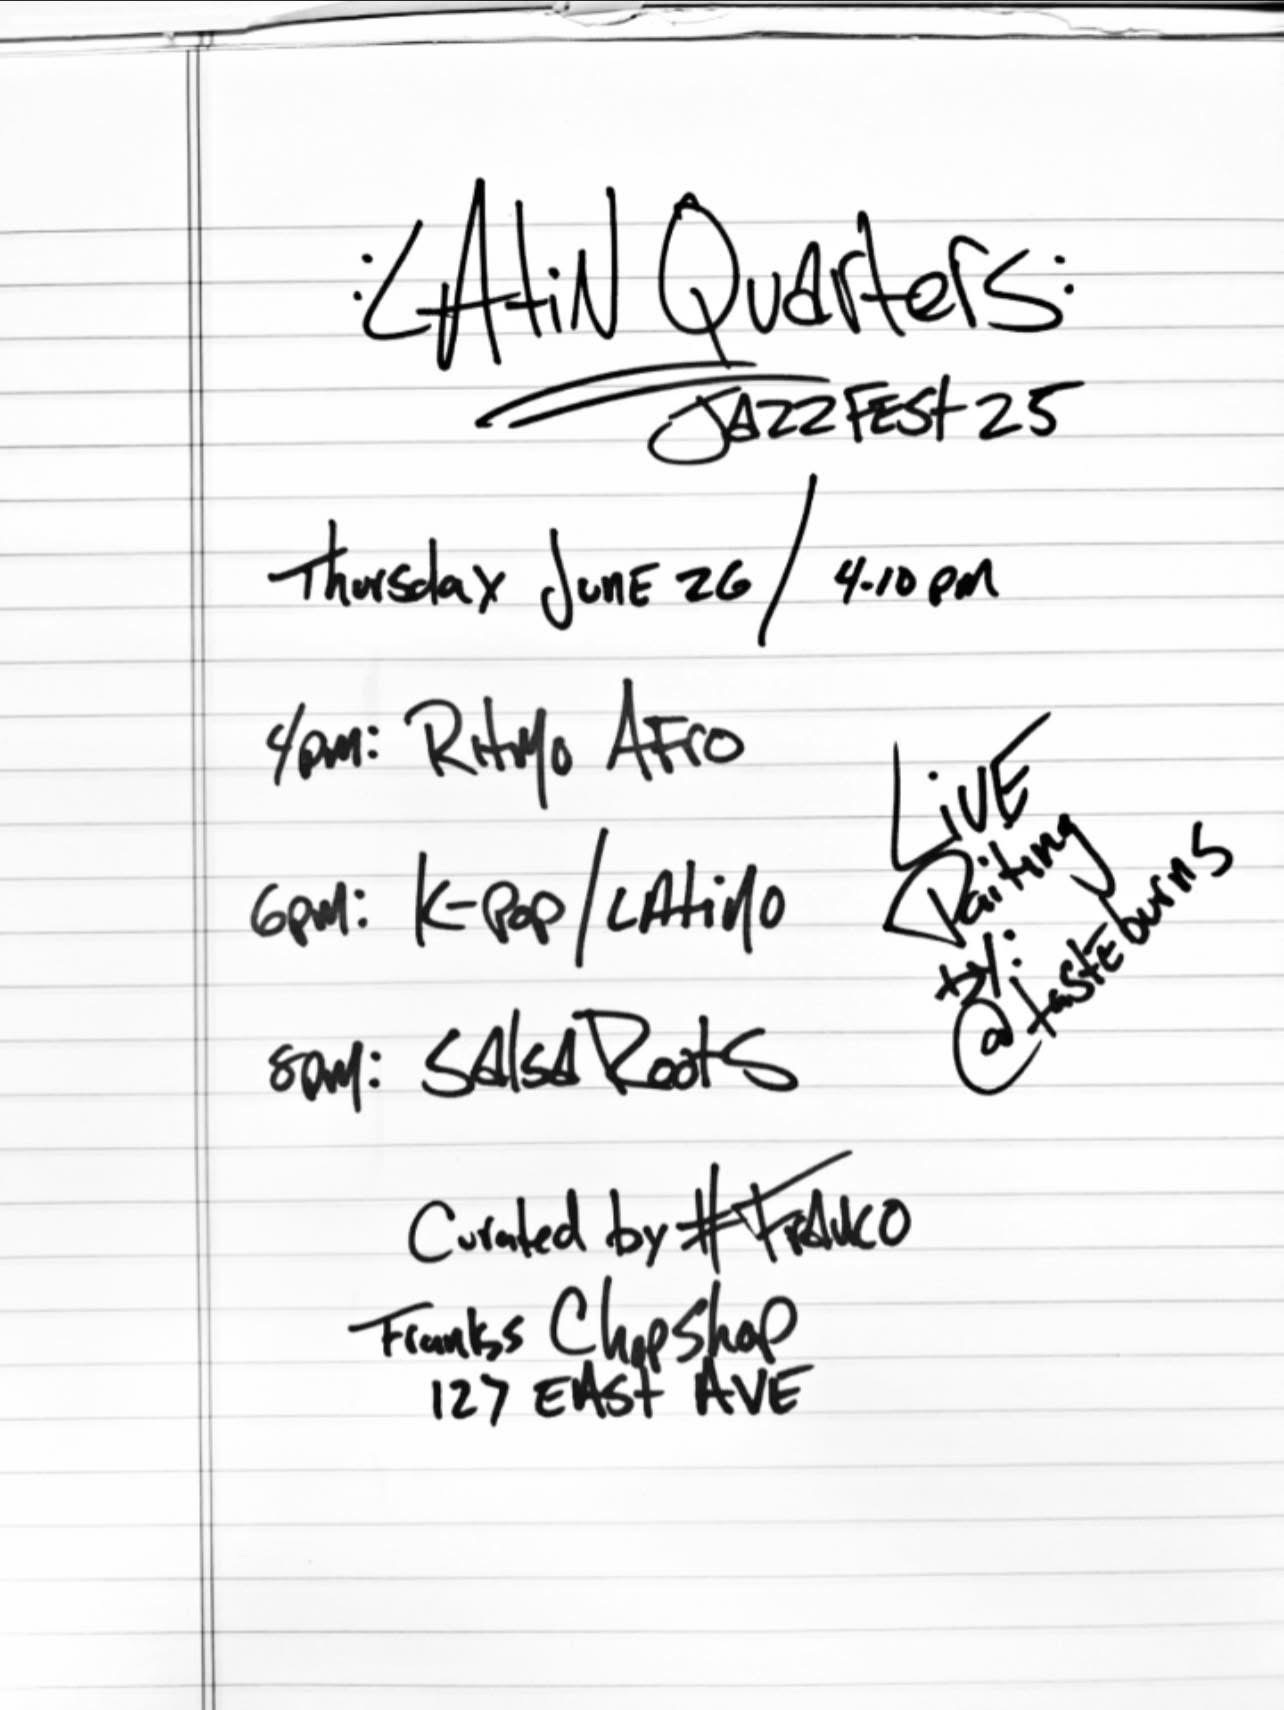 :LAtiN Quarters:
JAZZFEST 25
Thursday JUNE 26 / 4-10 pm
4pm: Ritmo AFro
6pm: K-Pop/LAtiNo
8pm: SAlsA Roots
LiVE
Paiting
by:
@tasteburns
Curated by #FrANCO
Franks Chopshop
127 EAST AVE